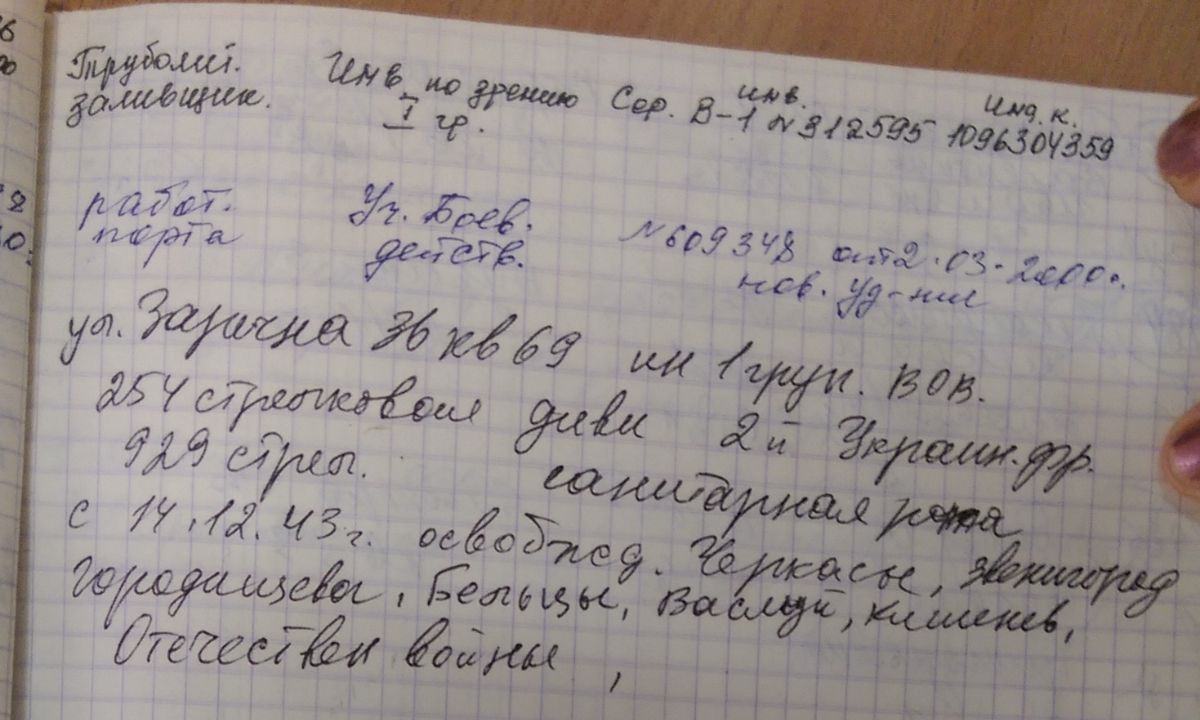 Труболит. Инв. по зрению Сер. В-1 инв. №312595 Инд. к. 1096304359
заливщик. I гр.
работ. Уч. Боев. №609348 от 2.03.2000г.
порта действ. нов. уд-ние
ул. Заречна 36 кв 69 ин 1 груп. ВОВ.
254 стрелковая диви 2й Украин. фр.
929 стрел. санитарная рота
с 14.12.43г. освобожд. Черкассы, Звенигород
Городищева, Бельцы, Васлуй, Кишенев,
Отечествен войны,